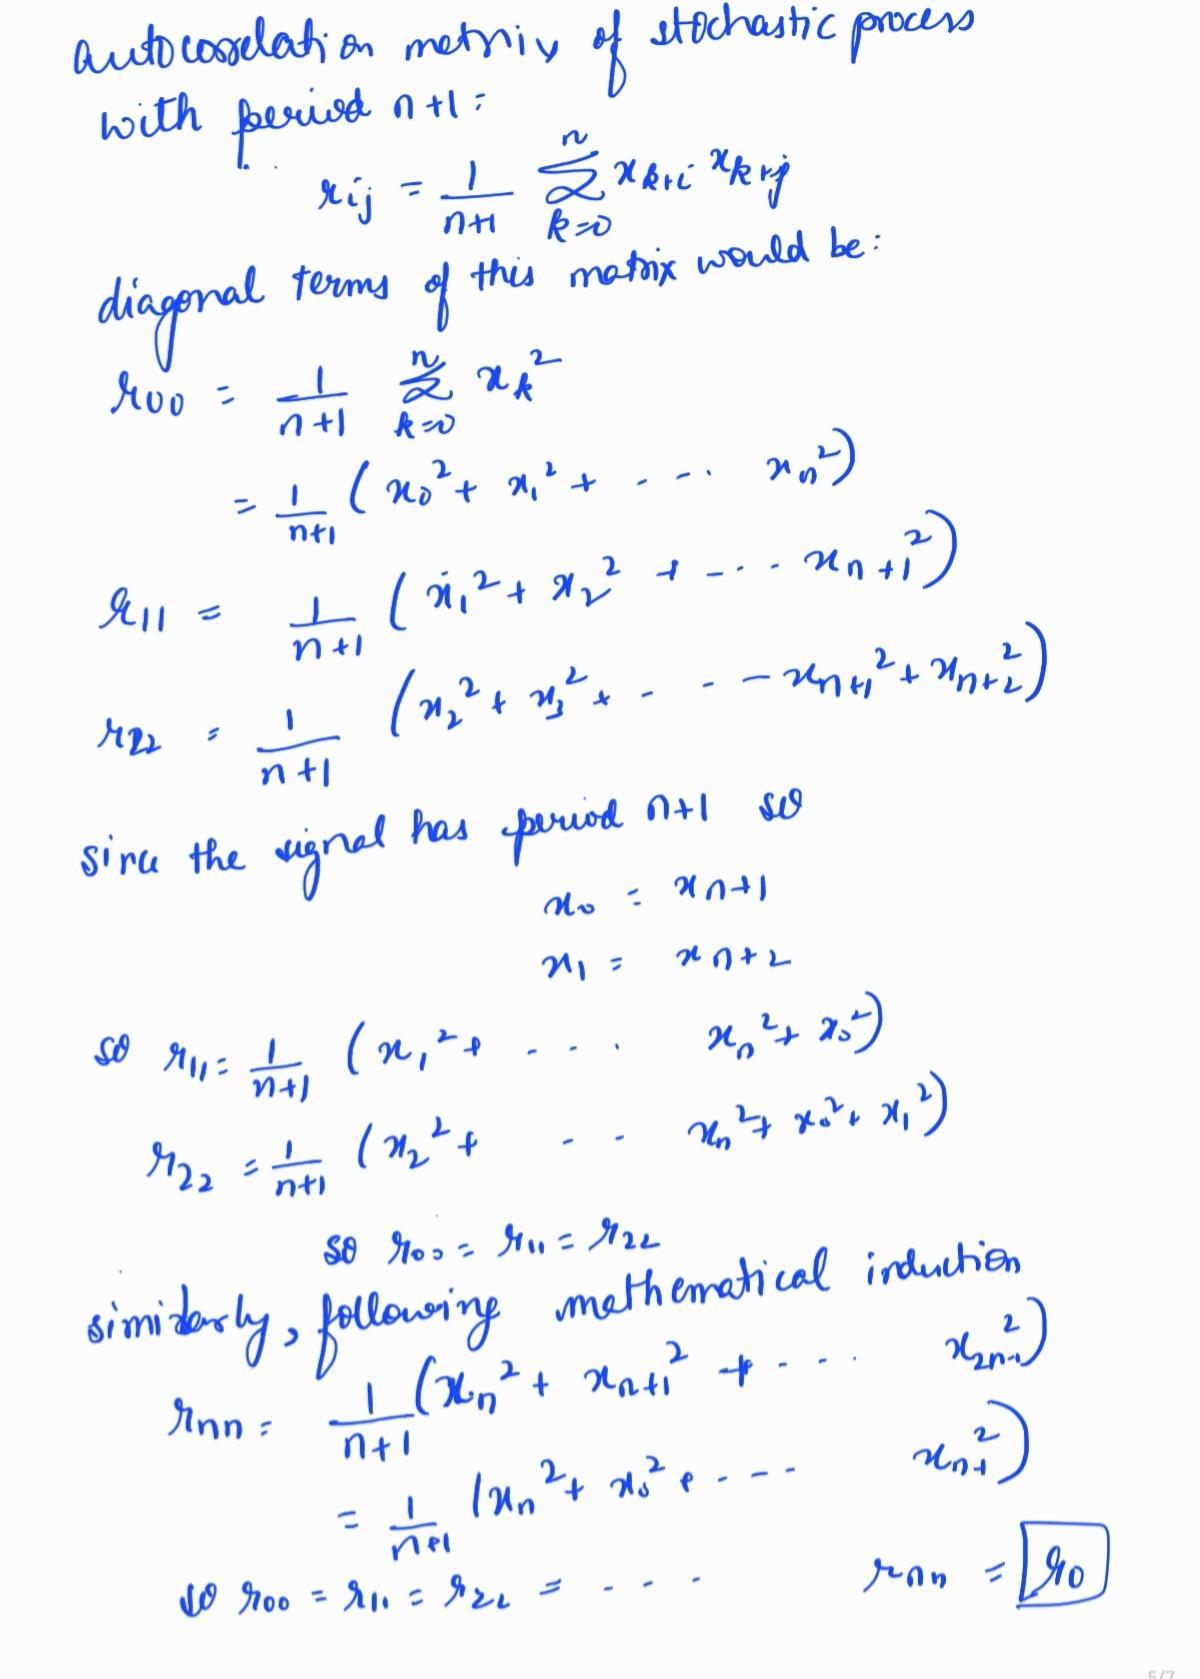 autocorrelation metrix of stochastic process
with period n+1:
r_ij = 1/(n+1) Σ_{k=0}^{n} x_{k+i} x_{k+j}
diagonal terms of this matrix would be:
r_00 = 1/(n+1) Σ_{k=0}^{n} x_k^2
= 1/(n+1) (x_0^2 + x_1^2 + - -- x_n^2)
r_11 = 1/(n+1) (x_1^2 + x_2^2 + - -- x_{n+1}^2)
r_22 = 1/(n+1) (x_2^2 + x_3^2 + - - - x_{n+1}^2 + x_{n+2}^2)
since the signal has period n+1 so
x_0 = x_{n+1}
x_1 = x_{n+2}
so r_11 = 1/(n+1) (x_1^2 + - - - x_n^2 + x_0^2)
r_22 = 1/(n+1) (x_2^2 + - - x_n^2 + x_0^2 + x_1^2)
so r_00 = r_11 = r_22
similarly, following mathematical induction
r_nn = 1/(n+1) (x_n^2 + x_{n+1}^2 + - -- x_{2n-1}^2)
= 1/(n+1) (x_n^2 + x_0^2 + - -- x_{n-1}^2)
so r_00 = r_11 = r_22 = - - - r_nn = r_0
5/7